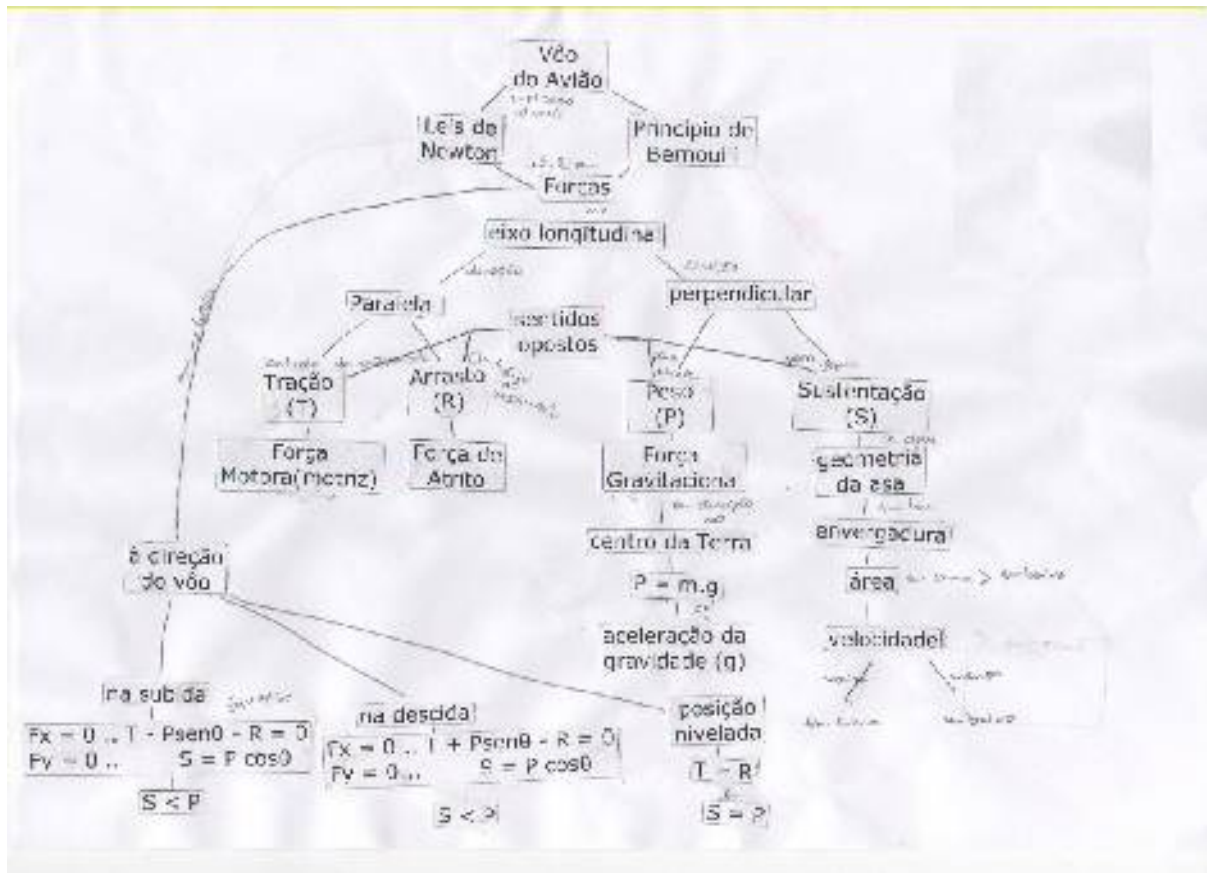 Vôo
do Avião
Leis de
Newton
Princípio de
Bernoulli
Forças
eixo longitudinal
direção
Paralela
perpendicular
sentidos
opostos
Tração
(T)
Arrasto
(R)
Peso
(P)
Sustentação
(S)
Força
Motora(motriz)
Força de
Atrito
Força
Gravitacional
geometria
da asa
em direção
ao
centro da Terra
envergadura
à direção
do vôo
P = m.g
área
em cima > embaixo
aceleração da
gravidade (g)
velocidade
maior
menor
em cima
embaixo
na subida
Fx = 0 .. T - Psenθ - R = 0
Fy = 0 .. S = P cosθ
S < P
na descida
Fx = 0 .. T + Psenθ - R = 0
Fy = 0 .. S = P cosθ
S < P
posição
nivelada
T = R
S = P